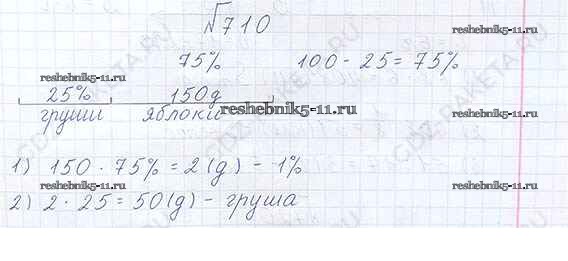 √710
75% 100 - 25 = 75%
reshebnik5-11.ru
reshebnik5-11.ru
25% 150g
reshebnik5-11.ru
reshebnik5-11.ru
груши яблоки
1) 150 · 75% = 2(g) - 1%
reshebnik5-11.ru
reshebnik5-11.ru
2) 2 · 25 = 50(g) - груша